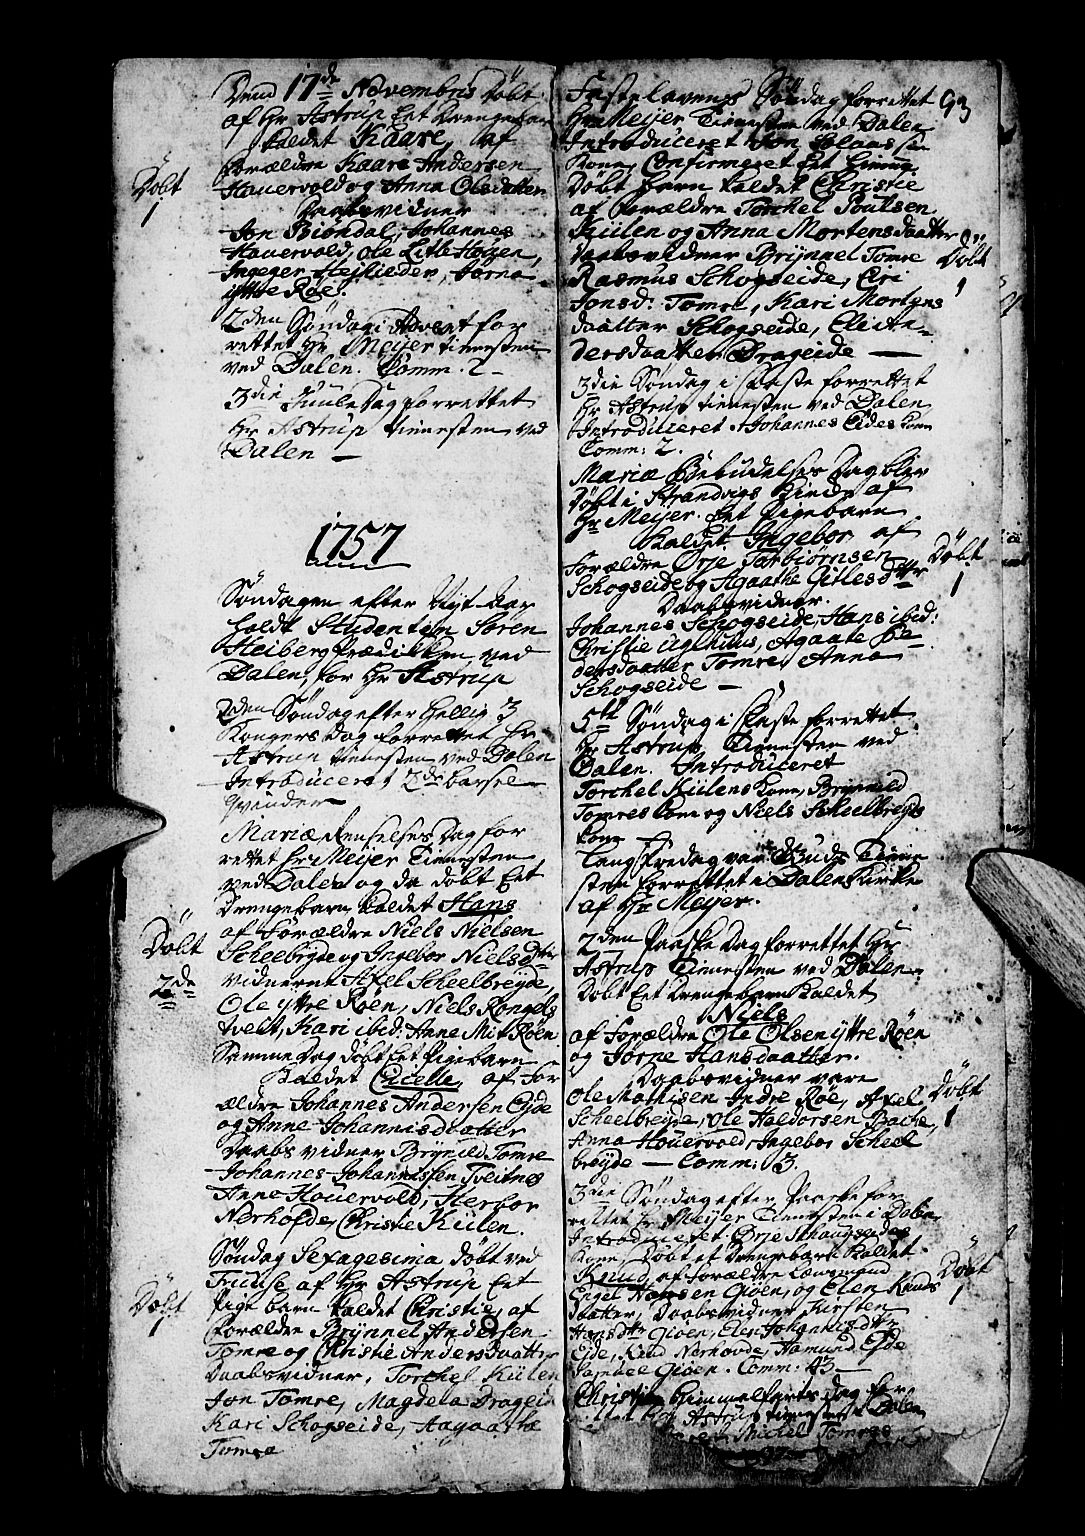 Dend 17de Novembris Döbt
af Hr Astrup Eet Drengebarn
kaldet Kaare, af
Forældre Kaare Andersen
Döbt
1
Houervold og Anna Olsdatter
Daabsvidner
Jon Biöndal, Johannes
Houervold, Ole Litle Høyen,
Ingeger Hejlieder, Jorna
ÿttre Röe.
2den Söndag i Advent for
rettet Hr Meijer tienesten
ved Dalen. Comm. 2
3die Juule Dag forrettet
Hr Astrup tienesten ved
Dalen —
1757
Söndagen efter Nyt-Aar
holdt Studenten Sören
Heiberg Prædikken ved
Dalen, for Hr Astrup
2den Söndag efter Hellig 3
Kongers Dag forrettet Hr
Astrup tienesten ved Dalen
Introduceret 2de barsel
qvinder
Mariæ Renselses Dag for
rettet Hr Meijer Tienesten
ved Dalen og da döbt Eet
Drengebarn kaldet Hans
af Forældre Niels Nielsen
Döbt
2de
Scheebryde og Ingebor Nielsdtter
vidneret Axel Scheelbreyde,
Ole ÿttre Röen, Niels Kongels
tvedt, Kari ibid: Anne Mit Röen
Samme Dag döbt Eet Pigebarn
kaldet Cicelle, af For
ældre Johannes Andersen Eyde
og Anne Johannisdaatter
Daabsvidner Brynild Tomre
Johannes Johannessen Tveitnes
Anne Houervold, Herbor
Nerhofde, Christie Kiilen.
Söndag Sexagesima döbt ved
Fuuse af Hr Astrup Eet
Pige barn kaldet Christie, af
Döbt
1
Forældre Brynnel Andersen
Tomre og Christie Andersdaatter
Daabsvidner, Torchel Kiilen
Jon Tomre, Magdela Drageid
Kari Schogseide, Aagaathe
Tomre
Fastelavens Söndag forrettet
93
Hr Meijer Tienesten ved Dalen
Introduceret Jon Solaas
Kone, Confirmeret Eet
Döbt barn kaldet Christie
af Forældre Torchel Poulsen
Kiilen og Anna Mortensdaatter
Döbt
1
Daabsvidner Brynnel Tomre
Rasmus Schogseide, Eli
Jonsd: Tomre, Kari Mortens
daatter Schogseide, Eli An-
dersdaatter Drageide —
3die Söndag i Faste forrettet
Hr Astrup tienesten ved Dalen
Introduceret Johannes Eides kone
Comm: 2.
Mariæ Bebudelses Dag blev
Döbt i Strandvigs Kirke af
Hr Meijer Eet Pigebarn
kaldet Ingebor af
Döbt
1
Forældre Örje Torbiörnsen
Schogseide og Agaathe Gitlesdtter
Daabsvidner.
Johannes Schogseide, Hans ibid:
Christie Aghilus, Agaate Pe-
dersdaatter Tomre, Anna
Schogseide —
5te Söndag i Faste forrettet
Hr Astrup Tienesten ved
Dalen. Introduceret
Torchel Kiilens kone, Brynnild
Tomres kone og Niels Scheelbreyds
kone —
Langfredag var Guds Tiene
sten forrettet i Dalens Kirke
af Hr Meijer.
2den Paaske Dag forrettet Hr
Astrup Tienesten ved Dalen
Döbt Eet Drengebarn kaldet
Niels
af Forældre Ole Olsen ÿttre Röen
og Jörne Hansdaatter.
Daabsvidner vare
Döbt
1
Ole Mathisen Indre Röe, Axel
Scheelbreyde, Ole Haldorsen Bache,
Anna Houervold, Ingebor Scheel
breyde — Comm: 3.
3die Söndag efter Paaske for
rettet Hr Meijer Tienesten i Dalen
Introduceret Örje Schaugseides
Kone, Döbt et Drengebarn kaldet
Döbt
1
Knud, af Forældre Lænsmand
Engel Hansen Giöen, og Elen Knuds
daatter, Daabsvidner Kirsten
Hansdtter Giöen, Eli Johannisdtter
Eide, Knud Nerhovde, Aamund Eide
Giöen. Comm: 43 —
Christi Himmelfarts dag for
rettet Hr Astrup tienesten i Dalen
Michel Tomres